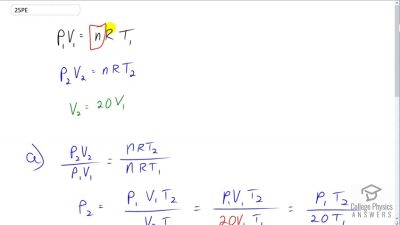 25PE
P₁V₁ = nR T₁
P₂V₂ = nRT₂
V₂ = 20V₁
a) P₂V₂ / P₁V₁ = nRT₂ / nRT₁
P₂ = P₁ V₁ T₂ / V₂ T₁ = P₁V₁ T₂ / 20V₁ T₁ = P₁ T₂ / 20 T₁
College Physics
ANSWERS